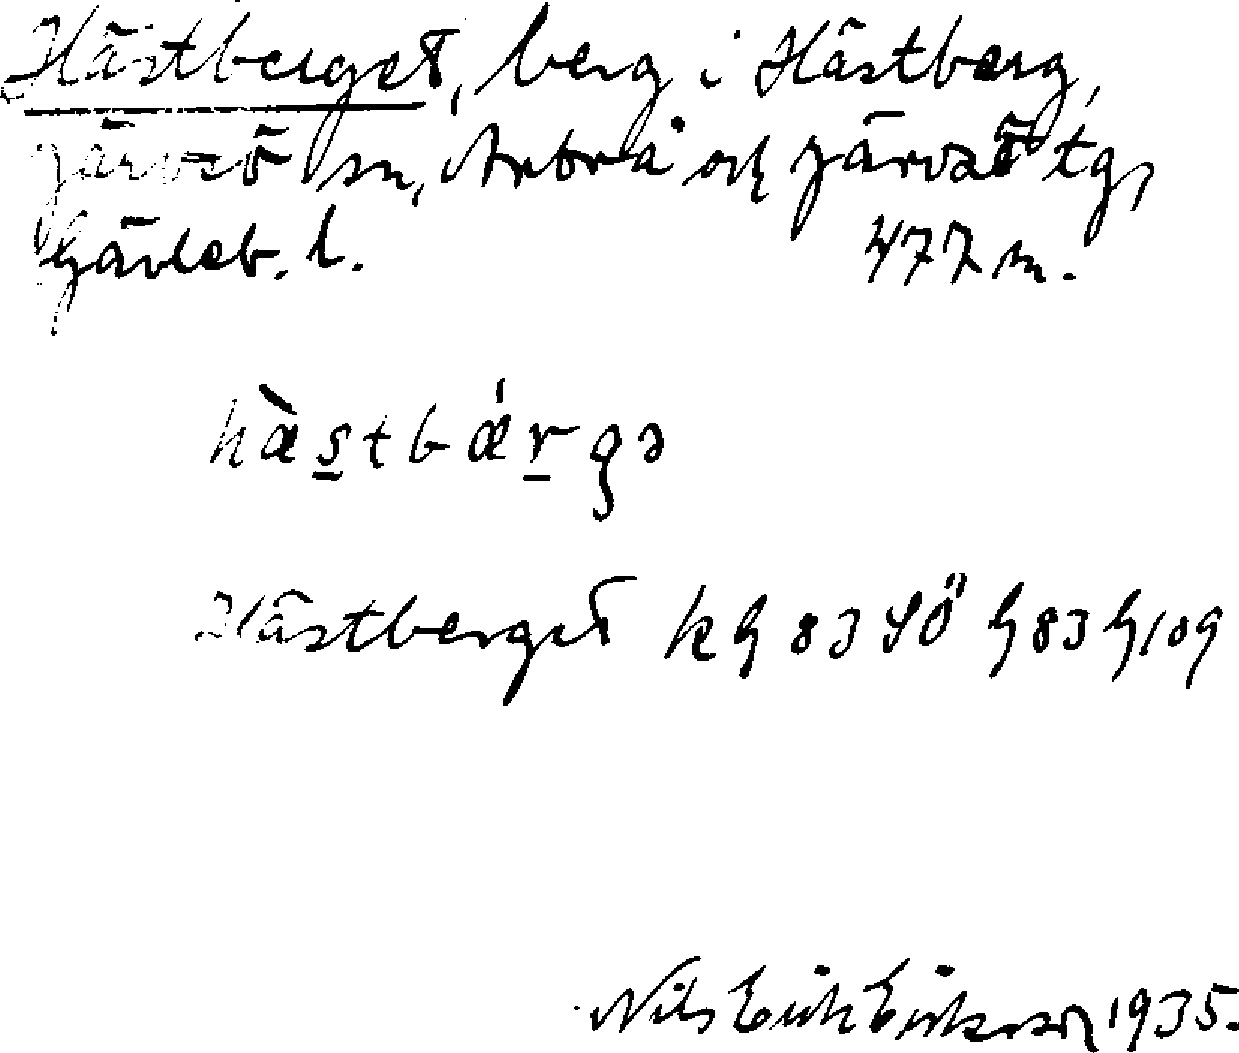 Hästberget, berg i Hästberg,
Järvsö sn, Arbrå och Järvsö tg,
Gävleb. l. 477 m.
hæ̀stbǽrgə
Hästberget k G 83 SÖ G 83 G 109
Nils Erik Eriksson 1935.